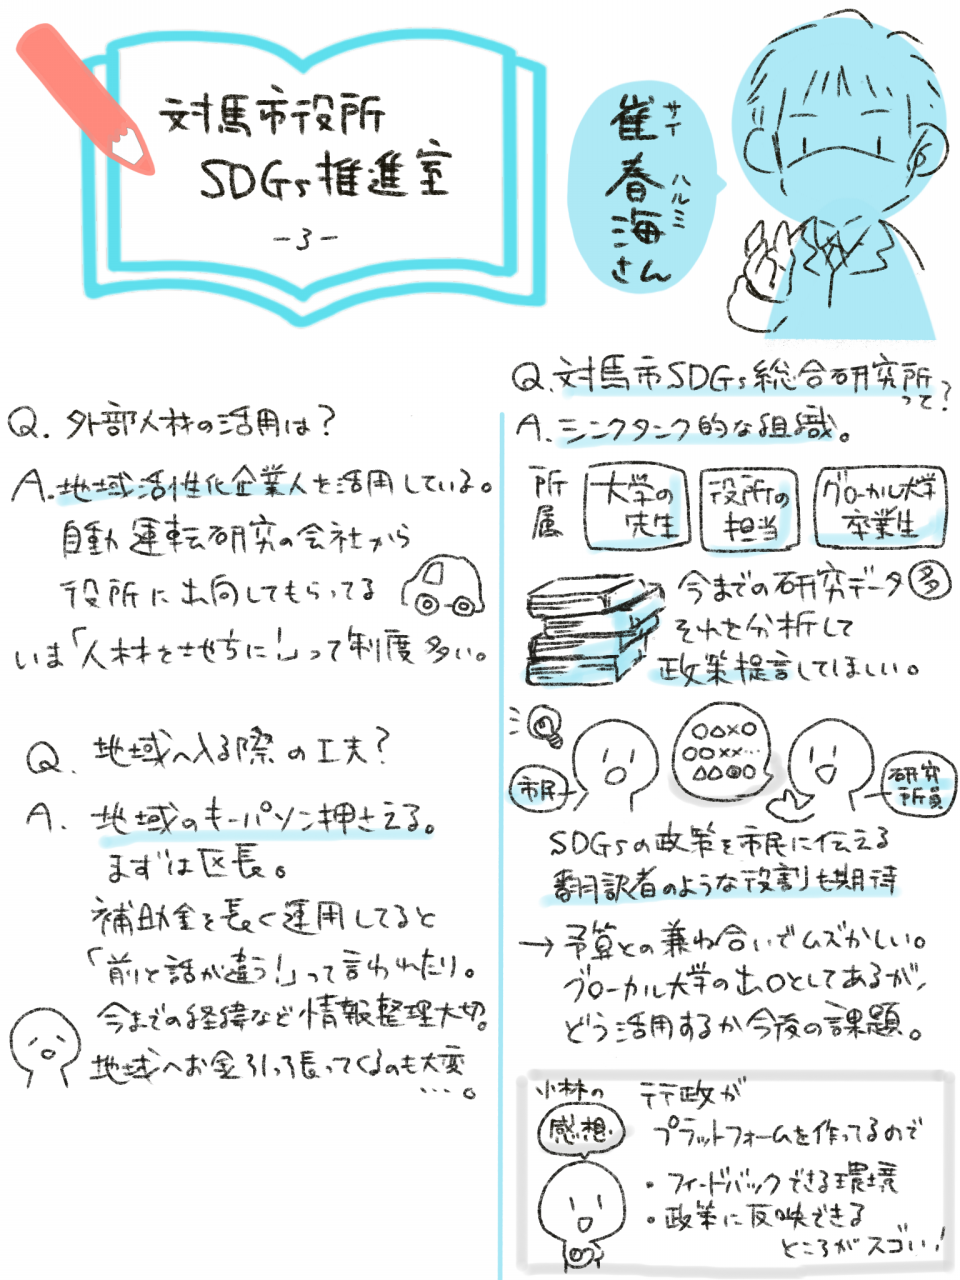 対馬市役所
SDGs推進室
-3-
崔春海さん
サイ
ハルミ
Q. 外部人材の活用は?
A. 地域活性化企業人を活用している。
自動運転研究の会社から
役所に出向してもらってる
いま「人材を地方に!」って制度多い。
Q. 地域へ入る際の工夫?
A. 地域のキーパソン押さえる。
まずは区長。
補助金を長く運用してると
「前と話が違う!」って言われたり。
今までの経緯など情報整理大切。
地域へお金引っ張ってくるのも大変
…。
Q. 対馬市SDGs総合研究所
って?
A. シンクタンク的な組織。
所属
大学の先生
役所の担当
グローカル大学卒業生
今までの研究データ多
それを分析して
政策提言してほしい。
市民
○△×○
○○××…
△△◎○
研究所員
SDGsの政策を市民に伝える
翻訳者のような役割も期待
→予算との兼ね合いでムズかしい。
グローカル大学の出口としてあるが、
どう活用するか今後の課題。
小林の
感想
行政が
プラットフォームを作ってるので
・フィードバックできる環境
・政策に反映できる
ところがスゴい!